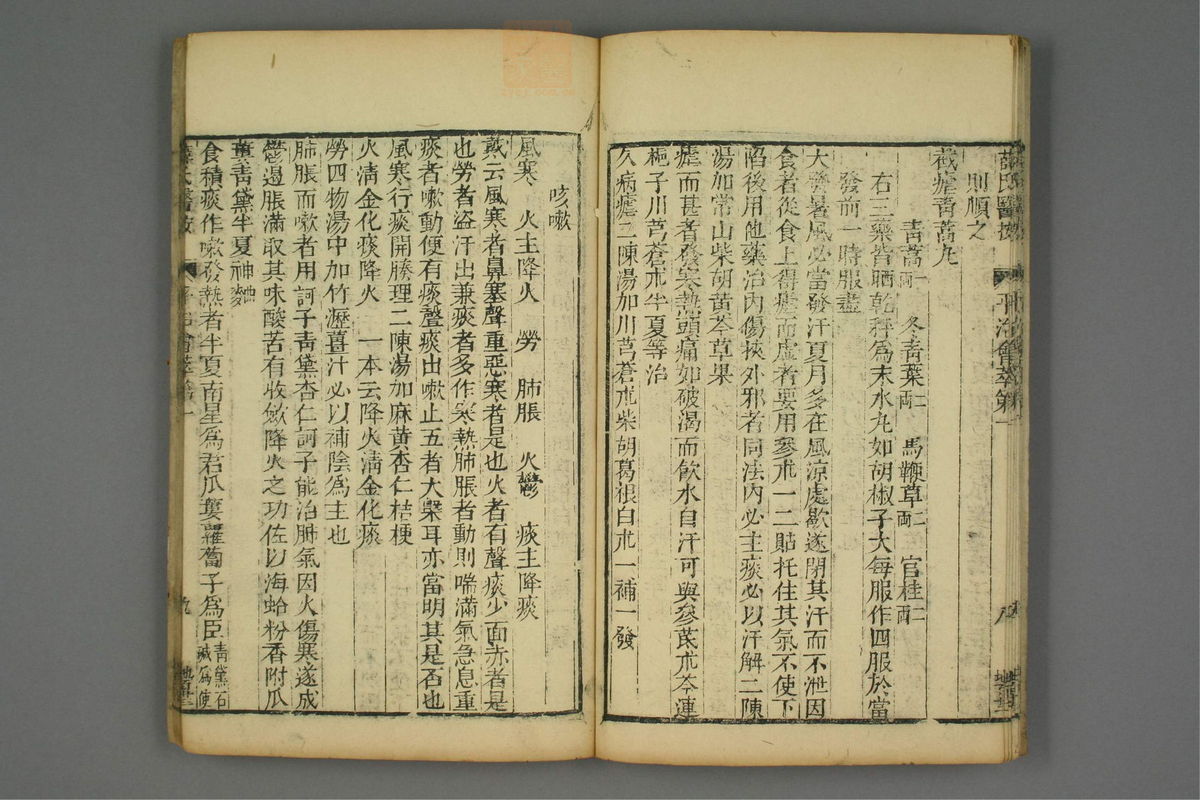 薛氏醫按 平治會萃卷一 八
則順之
截瘧青蒿丸
青蒿一兩 冬青葉二兩 馬鞭草二兩 官桂二兩
右三藥皆晒乾秤爲末水丸如胡椒子大每服作四服於當
發前一時服盡
大瘧暑風必當發汗夏月多在風涼處歇遂閉其汗而不泄因
食者從食上得瘧而虛者要用參朮一二貼托住其氣不使下
陷後用他藥治內傷挾外邪者同法內必主痰必以汗解二陳
湯加常山柴胡黃芩草果
瘧而甚者發寒熱頭痛如破渴而飲水自汗可與參芪朮芩連
梔子川芎蒼朮半夏等治
久病瘧二陳湯加川芎蒼朮柴胡葛根白朮一補一發
咳嗽
風寒 火主降火 勞 肺脹 火鬱 痰主降痰
戴云風寒者鼻塞聲重惡寒者是也火者有聲痰少面赤者是
也勞者盜汗出兼痰者多作寒熱肺脹者動則喘滿氣急息重
痰者嗽動便有痰聲痰出嗽止五者大槩耳亦當明其是否也
風寒行痰開腠理二陳湯加麻黃杏仁桔梗
火清金化痰降火 一本云降火清金化痰
勞四物湯中加竹瀝薑汁必以補陰爲主也
肺脹而嗽者用訶子青黛杏仁訶子能治肺氣因火傷寒遂成
鬱遏脹滿取其味酸苦有收斂降火之功佐以海蛤粉香附瓜
蔞青黛半夏神麴
食積痰作嗽發熱者半夏南星爲君瓜蔞蘿蔔子爲臣青黛石鹼爲使
薛氏醫按 平治會萃卷一 九